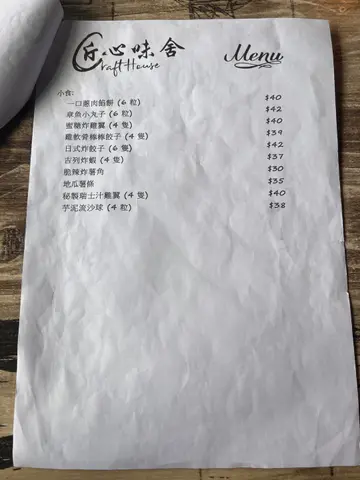 匠心味舍
Craft House
Menu
小食:
一口蔥肉餡餅 (6 粒) $40
章魚小丸子 (6 粒) $42
蜜糖炸雞翼 (4 隻) $40
雞軟骨棒棒餃子 (4 隻) $39
日式炸餃子 (6 隻) $42
吉列炸蝦 (4 隻) $37
脆辣炸薯角 $30
地瓜薯條 $35
秘製瑞士汁雞翼 (4 隻) $40
芋泥流沙球 (4 粒) $38